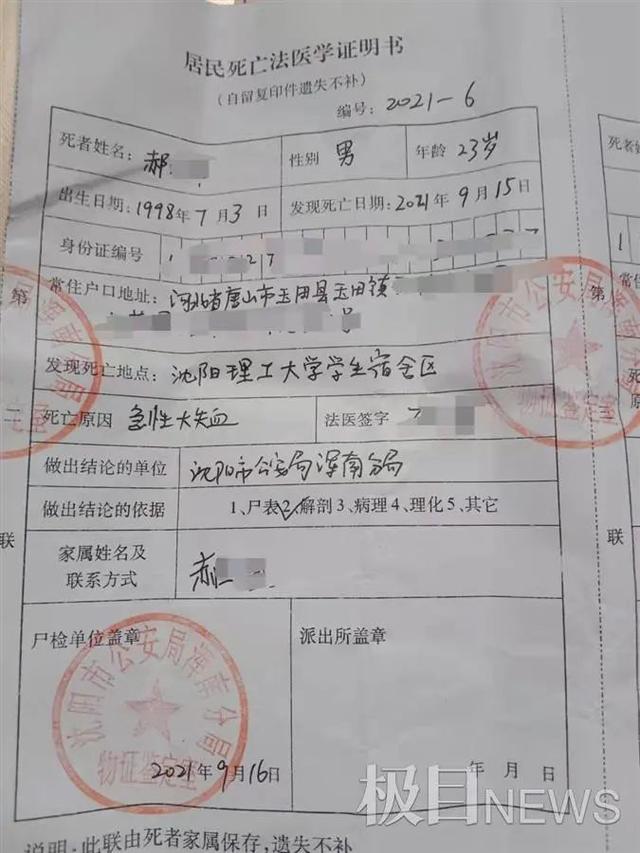 居民死亡法医学证明书
（自留复印件遗失不补）
编号：2021-6
死者姓名：郝 性别 男 年龄 23岁
出生日期：1998年7月3日 发现死亡日期：2021年9月15日
身份证编号
常住户口地址：河北省唐山市玉田县玉田镇
号
发现死亡地点：沈阳理工大学学生宿舍区
死亡原因 急性大失血 法医签字
做出结论的单位 沈阳市公安局浑南分局
做出结论的依据 1、尸表2、解剖3、病理4、理化5、其它
家属姓名及
联系方式 郝
尸检单位盖章 派出所盖章
沈阳市公安局浑南分局
物证鉴定室
2021年9月16日 年 月 日
说明：此联由死者家属保存，遗失不补
第
二
联
沈阳市公安局浑南分局
物证鉴定室
第
联
极目NEWS